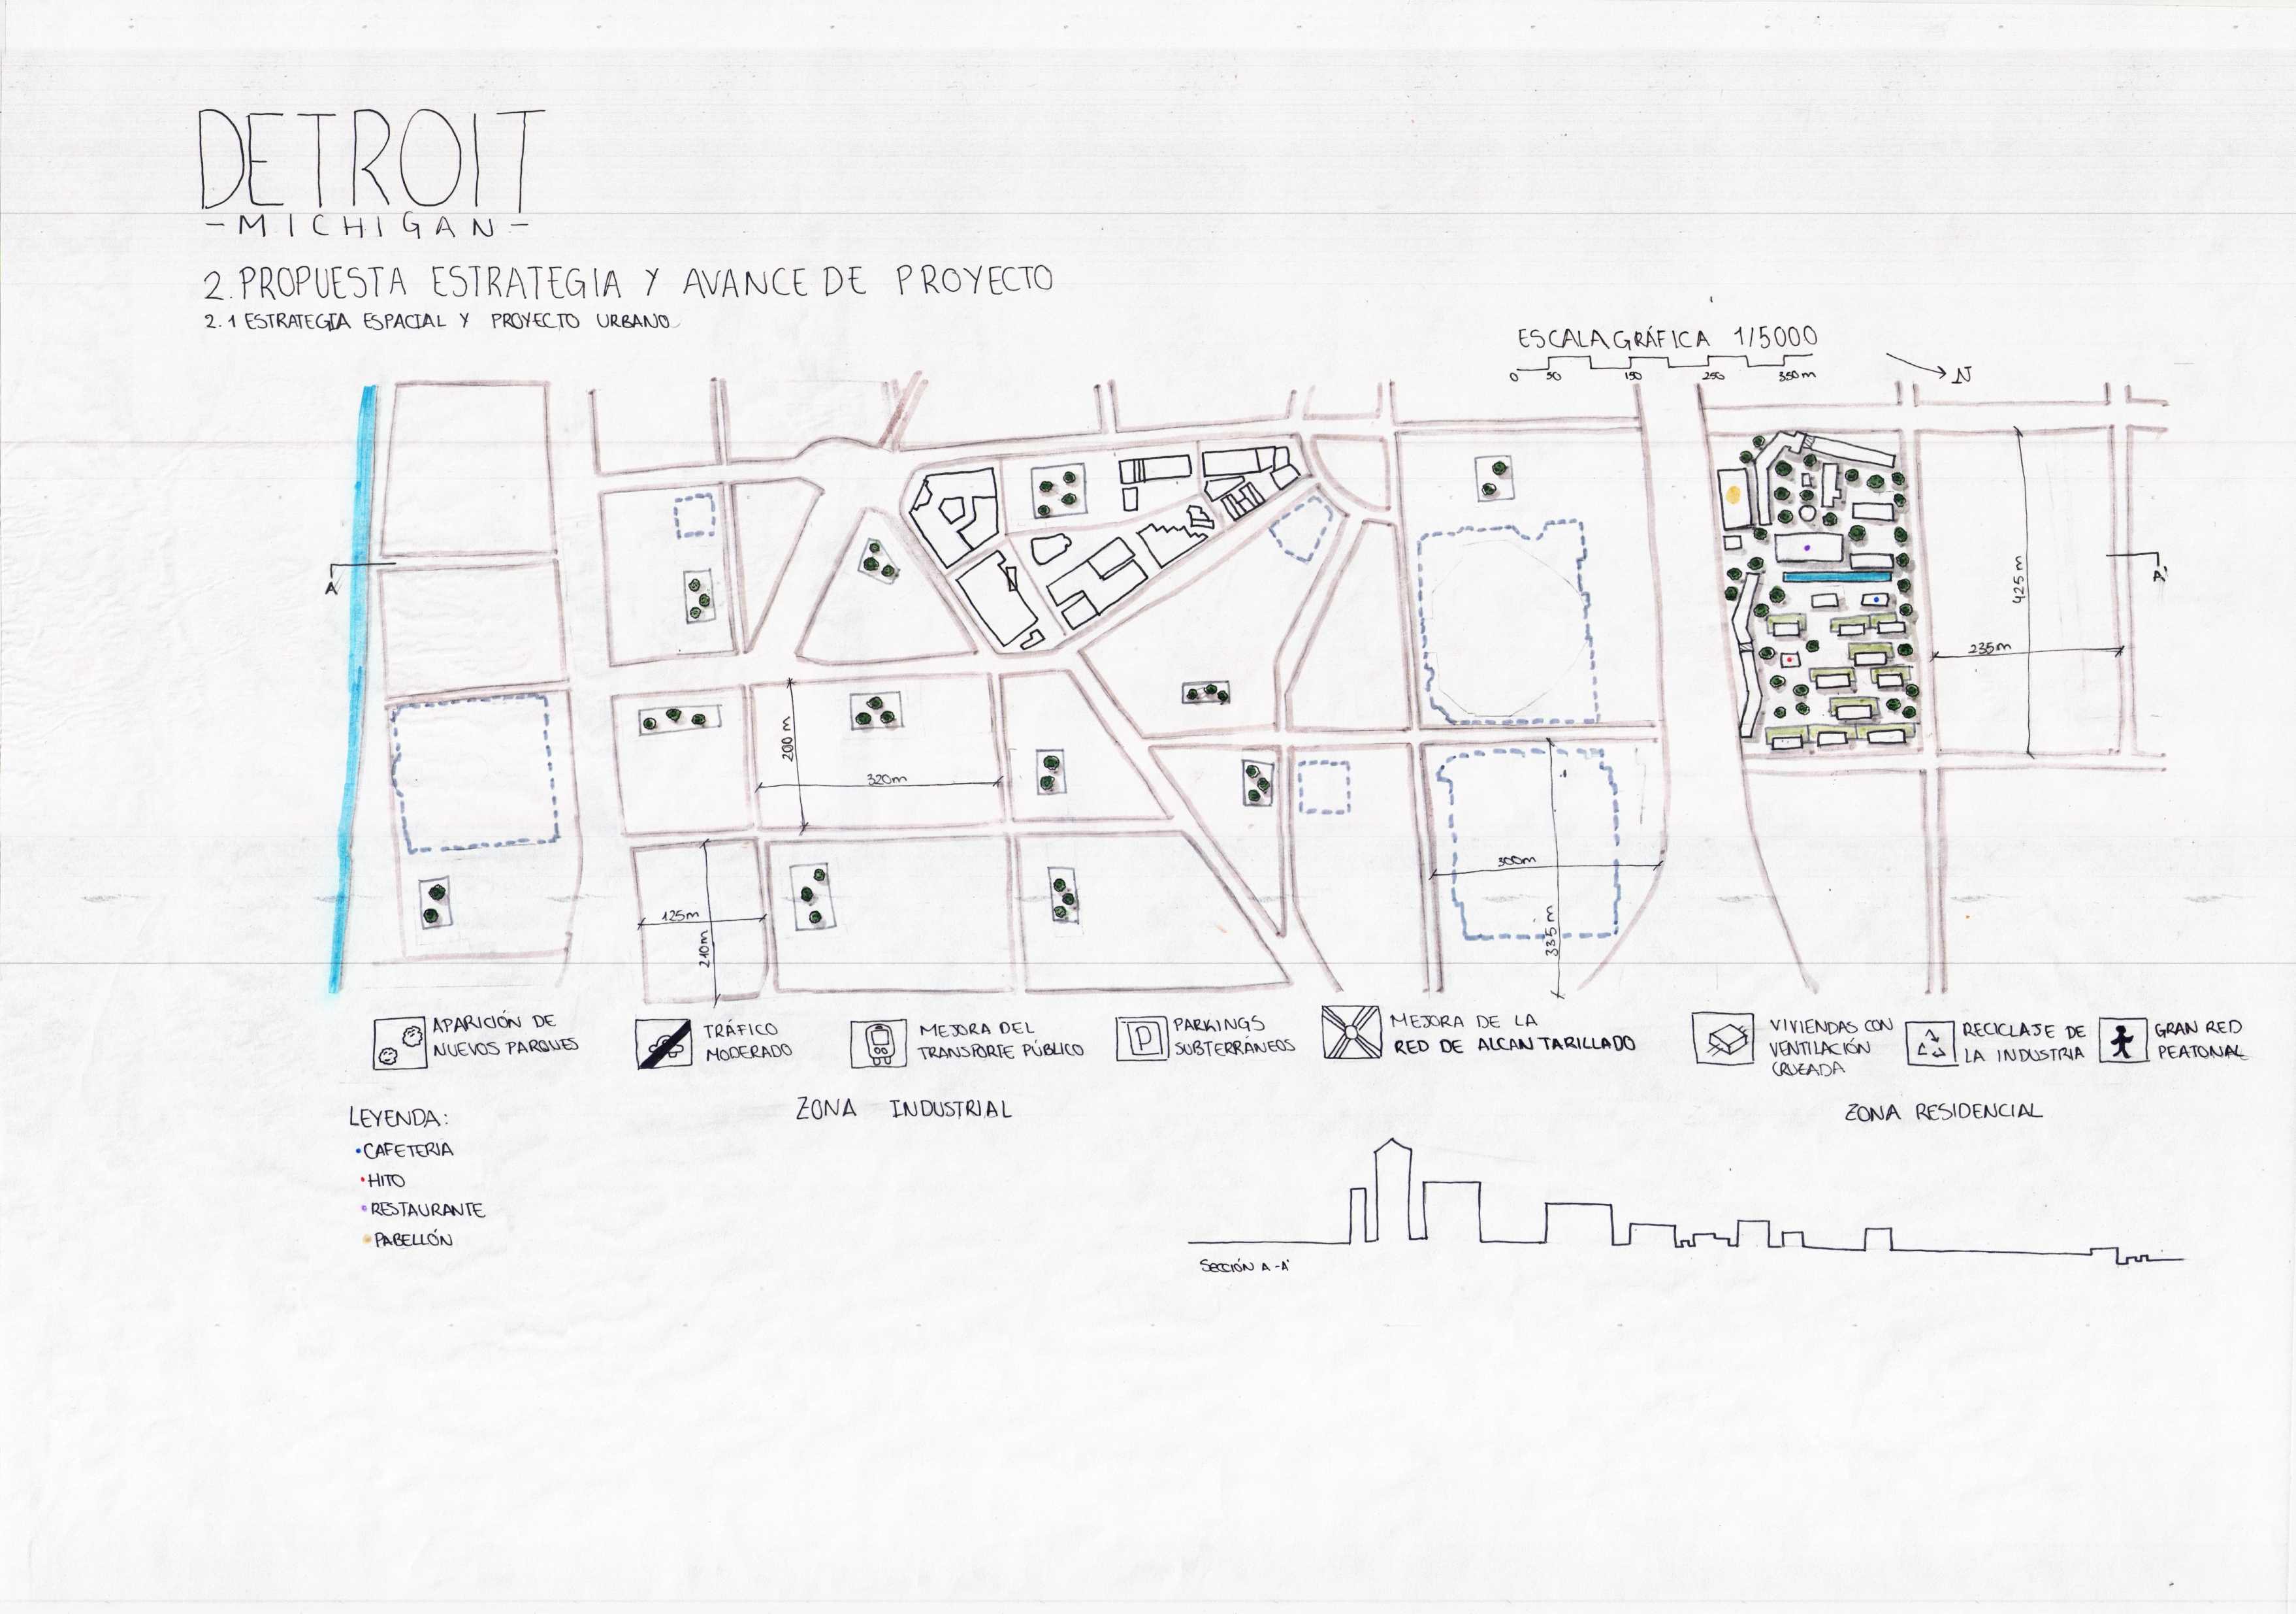 DETROIT
-MICHIGAN-
2. PROPUESTA ESTRATEGIA Y AVANCE DE PROYECTO
2.1 ESTRATEGIA ESPACIAL Y PROYECTO URBANO
ESCALA GRÁFICA 1/5000
0 50 150 250 350m
N
A
425m
235m
200m
320m
125m
210m
300m
335m
APARICIÓN DE
NUEVOS PARQUES
TRÁFICO
MODERADO
MEJORA DEL
TRANSPORTE PÚBLICO
P
PARKINGS
SUBTERRÁNEOS
MEJORA DE LA
RED DE ALCANTARILLADO
VIVIENDAS CON
VENTILACIÓN
CRUZADA
RECICLAJE DE
LA INDUSTRIA
GRAN RED
PEATONAL
ZONA INDUSTRIAL
ZONA RESIDENCIAL
LEYENDA:
•CAFETERIA
•HITO
•RESTAURANTE
•PABELLÓN
SECCIÓN A-A'